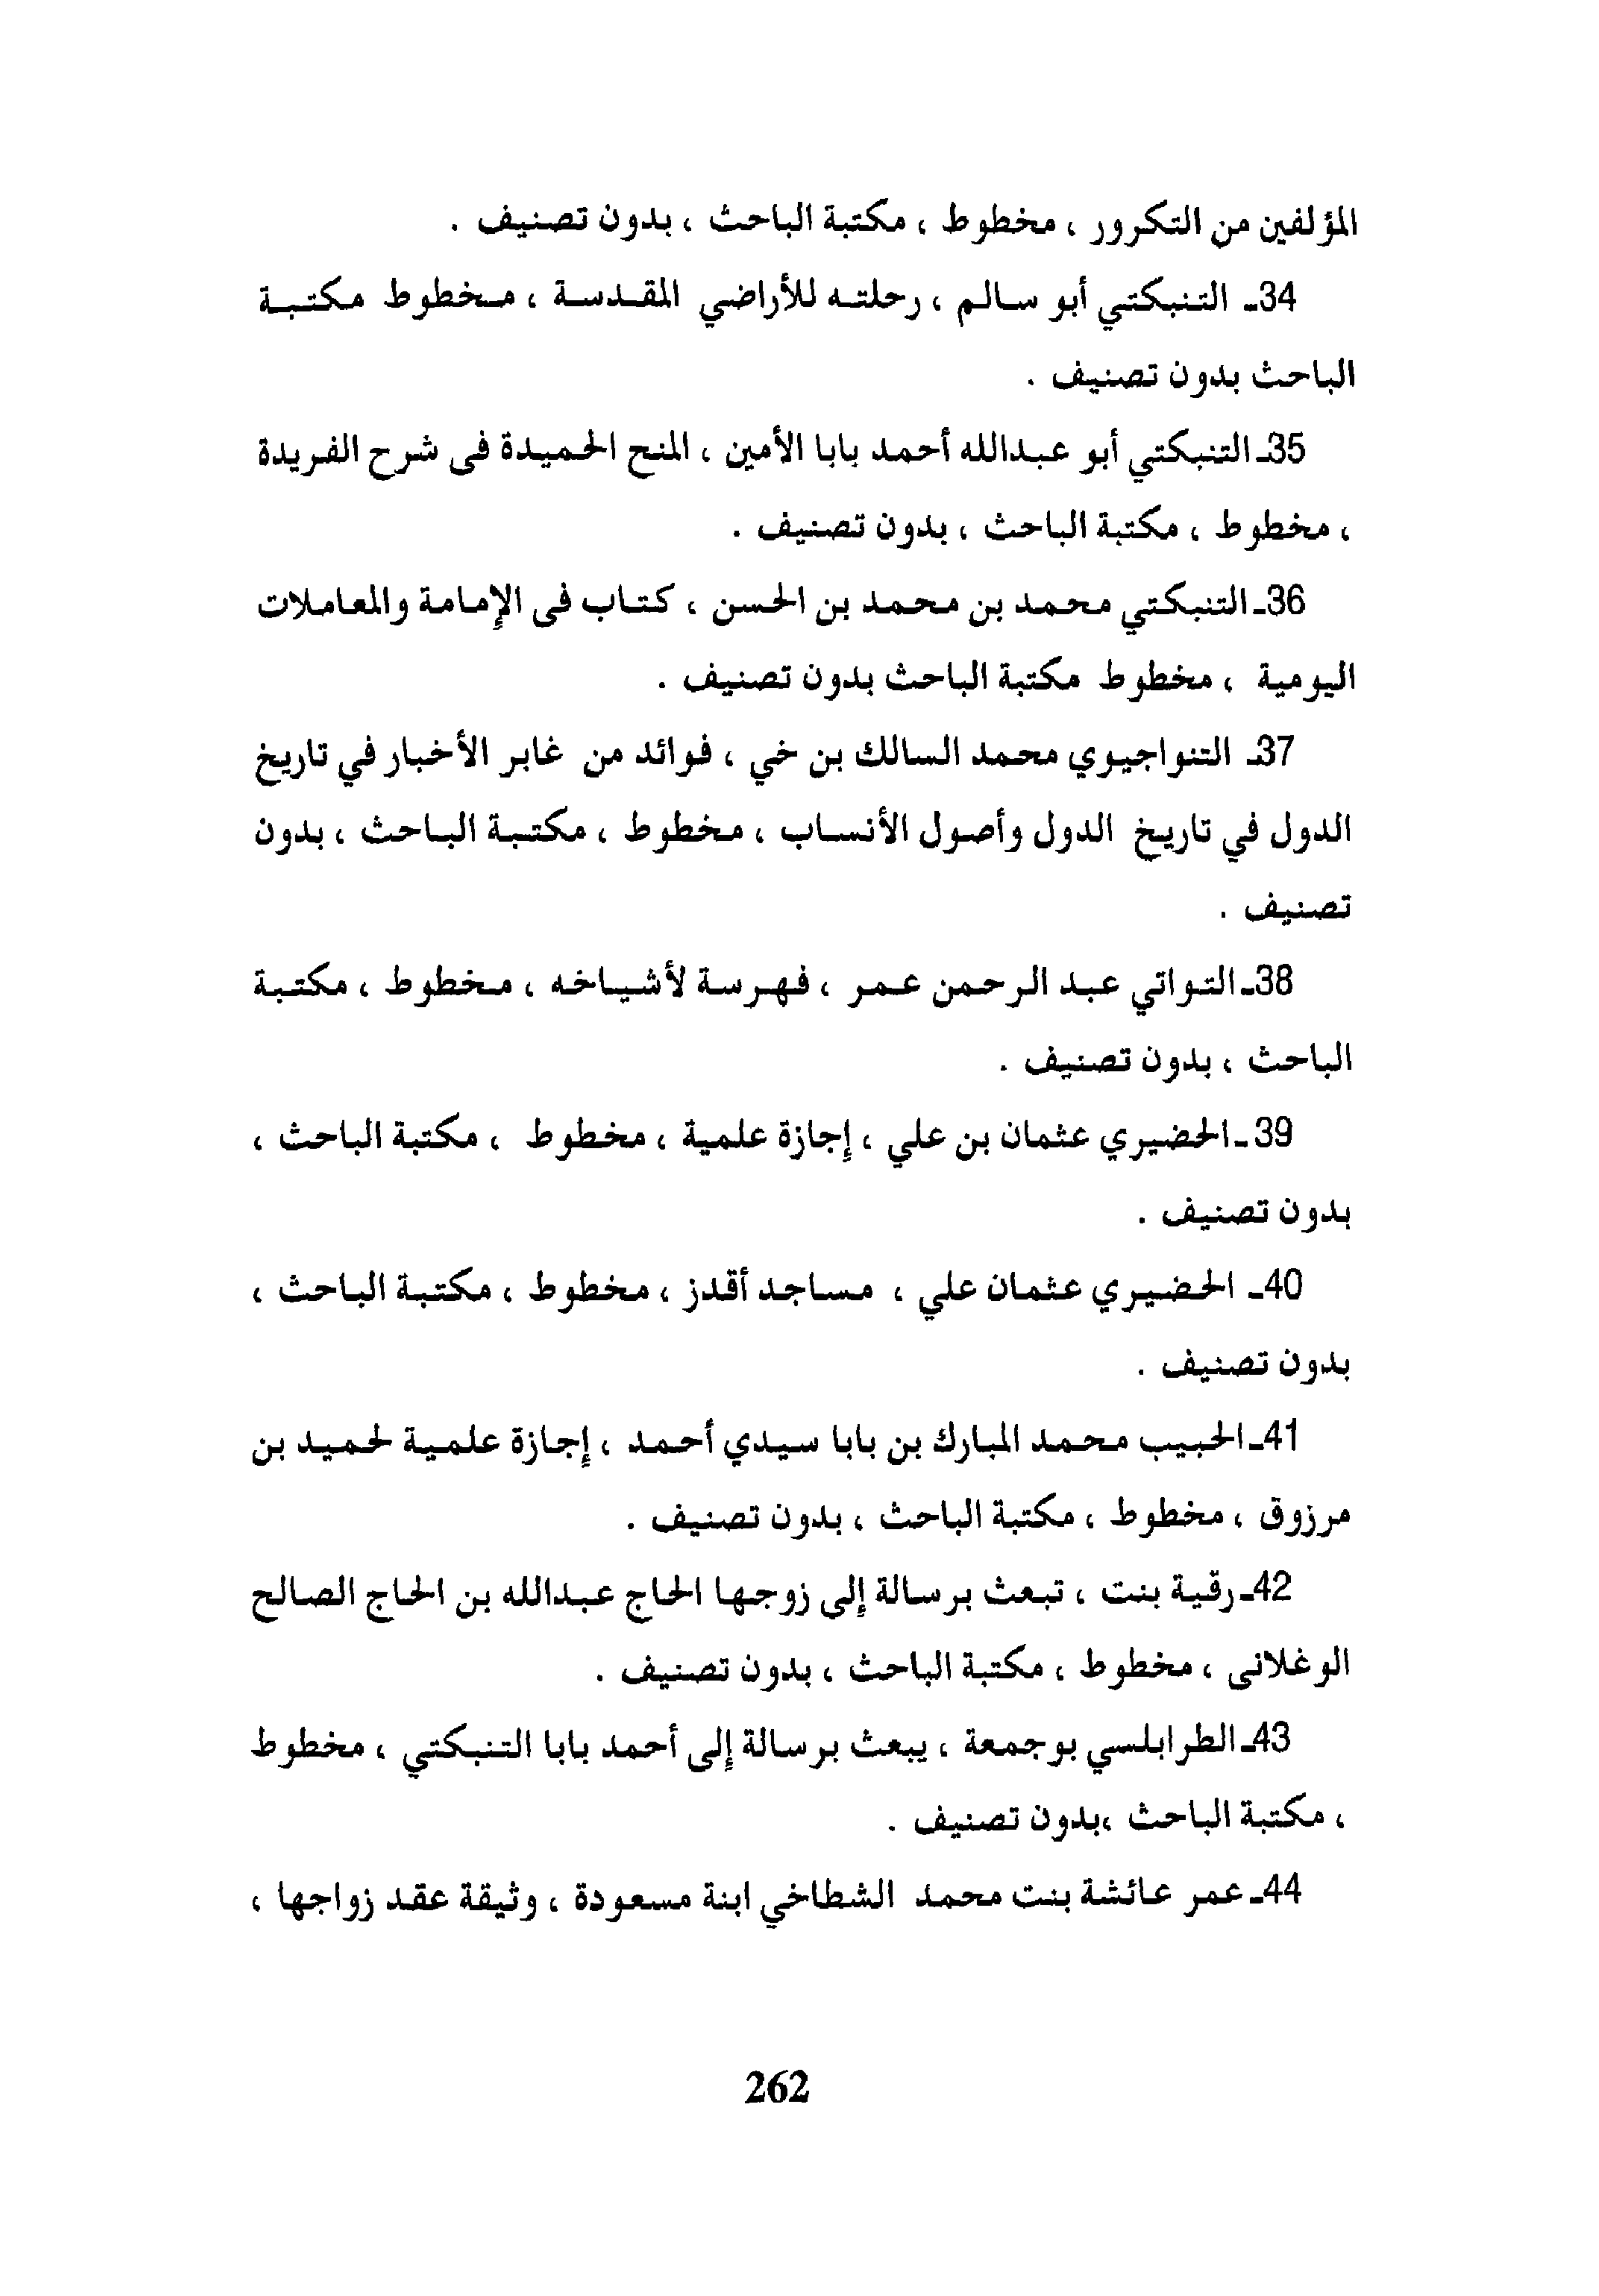 المؤلفين من التكرور ، مخطوط ، مكتبة الباحث ، بدون تصنيف .
34ـ التنبكتي أبو سالم ، رحلته للأراضي المقدسة ، مخطوط مكتبة
الباحث بدون تصنيف .
35ـ التنبكتي أبو عبدالله أحمد بابا الأمين ، المنح الحميدة فى شرح الفريدة
، مخطوط ، مكتبة الباحث ، بدون تصنيف .
36ـ التنبكتي محمد بن محمد بن الحسن ، كتاب فى الإمامة والمعاملات
اليومية ، مخطوط مكتبة الباحث بدون تصنيف .
37ـ التنواجيوي محمد السالك بن خي ، فوائد من غابر الأخبار في تاريخ
الدول في تاريخ الدول وأصول الأنساب ، مخطوط ، مكتبة الباحث ، بدون
تصنيف .
38ـ التواتي عبد الرحمن عمر ، فهرسة لأشياخه ، مخطوط ، مكتبة
الباحث ، بدون تصنيف .
39ـ الحضيري عثمان بن علي ، إجازة علمية ، مخطوط ، مكتبة الباحث ،
بدون تصنيف .
40ـ الحضيري عثمان علي ، مساجد أقدز ، مخطوط ، مكتبة الباحث ،
بدون تصنيف .
41ـ الحبيب محمد المبارك بن بابا سيدي أحمد ، إجازة علمية لحميد بن
مرزوق ، مخطوط ، مكتبة الباحث ، بدون تصنيف .
42ـ رقية بنت ، تبعث برسالة إلى زوجها الحاج عبدالله بن الحاج الصالح
الوغلانى ، مخطوط ، مكتبة الباحث ، بدون تصنيف .
43ـ الطرابلسي بوجمعة ، يبعث برسالة إلى أحمد بابا التنبكتي ، مخطوط
، مكتبة الباحث ،بدون تصنيف .
44ـ عمر عائشة بنت محمد الشطاخي ابنة مسعودة ، وثيقة عقد زواجها ،
262